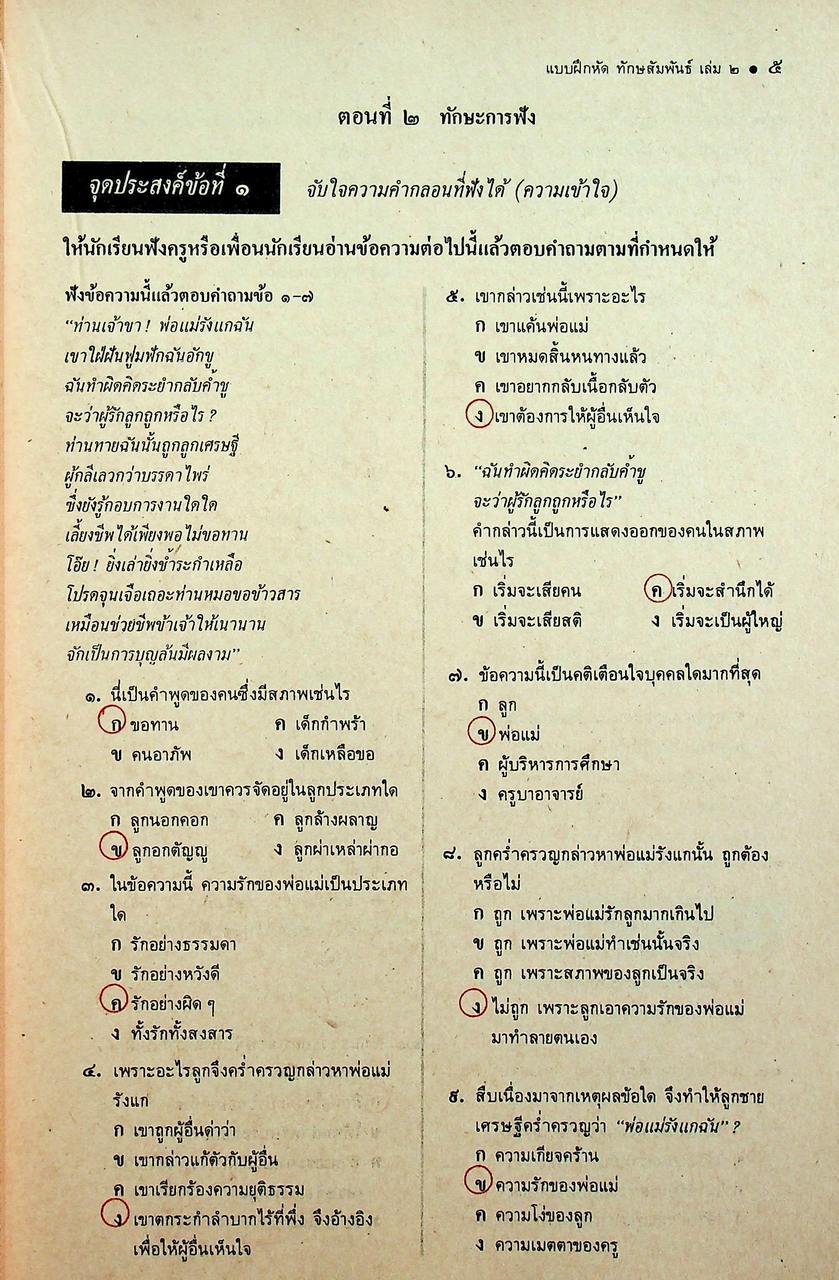 แบบฝึกหัด ทักษสัมพันธ์ เล่ม ๒ ● ๕
ตอนที่ ๒ ทักษะการฟัง
จุดประสงค์ข้อที่ ๑
จับใจความคำกลอนที่ฟังได้ (ความเข้าใจ)
ให้นักเรียนฟังครูหรือเพื่อนนักเรียนอ่านข้อความต่อไปนี้แล้วตอบคำถามตามที่กำหนดให้
ฟังข้อความนี้แล้วตอบคำถามข้อ ๑-๗
“ท่านเจ้าขา! พ่อแม่รังแกฉัน
เขาใฝ่ฝันฟูมฟักฉันอักขู
ฉันทำผิดคิดระยำกลับค้ำชู
จะว่าผู้รักลูกถูกหรือไร?
ท่านทายฉันนั้นถูกลูกเศรษฐี
ผู้กลีเลวกว่าบรรดาไพร่
ซึ่งยังรู้กอบการงานใดใด
เลี้ยงชีพได้เพียงพอไม่ขอทาน
โอ๊ย! ยิ่งเล่ายิ่งช้ำระกำเหลือ
โปรดจุนเจือเถอะท่านหมอขอข้าวสาร
เหมือนช่วยชีพข้าเจ้าให้เนานาน
จักเป็นการบุญล้นมีผลงาม”
๑. นี่เป็นคำพูดของคนซึ่งมีสภาพเช่นไร
ก ขอทาน ค เด็กกำพร้า
ข คนอาภัพ ง เด็กเหลือขอ
๒. จากคำพูดของเขาควรจัดอยู่ในลูกประเภทใด
ก ลูกนอกคอก ค ลูกล้างผลาญ
ข ลูกอกตัญญู ง ลูกผ่าเหล่าผ่ากอ
๓. ในข้อความนี้ ความรักของพ่อแม่เป็นประเภท
ใด
ก รักอย่างธรรมดา
ข รักอย่างหวังดี
ค รักอย่างผิด ๆ
ง ทั้งรักทั้งสงสาร
๔. เพราะอะไรลูกจึงคร่ำครวญกล่าวหาพ่อแม่
รังแก
ก เขาถูกผู้อื่นด่าว่า
ข เขากล่าวแก้ตัวกับผู้อื่น
ค เขาเรียกร้องความยุติธรรม
ง เขาตกระกำลำบากไร้ที่พึ่ง จึงอ้างอิง
เพื่อให้ผู้อื่นเห็นใจ
๕. เขากล่าวเช่นนี้เพราะอะไร
ก เขาแค้นพ่อแม่
ข เขาหมดสิ้นหนทางแล้ว
ค เขาอยากกลับเนื้อกลับตัว
ง เขาต้องการให้ผู้อื่นเห็นใจ
๖. “ฉันทำผิดคิดระยำกลับค้ำชู
จะว่าผู้รักลูกถูกหรือไร”
คำกล่าวนี้เป็นการแสดงออกของคนในสภาพ
เช่นไร
ก เริ่มจะเสียคน ค เริ่มจะสำนึกได้
ข เริ่มจะเสียสติ ง เริ่มจะเป็นผู้ใหญ่
๗. ข้อความนี้เป็นคติเตือนใจบุคคลใดมากที่สุด
ก ลูก
ข พ่อแม่
ค ผู้บริหารการศึกษา
ง ครูบาอาจารย์
๘. ลูกคร่ำครวญกล่าวหาพ่อแม่รังแกนั้น ถูกต้อง
หรือไม่
ก ถูก เพราะพ่อแม่รักลูกมากเกินไป
ข ถูก เพราะพ่อแม่ทำเช่นนั้นจริง
ค ถูก เพราะสภาพของลูกเป็นจริง
ง ไม่ถูก เพราะลูกเอาความรักของพ่อแม่
มาทำลายตนเอง
๙. สืบเนื่องมาจากเหตุผลข้อใด จึงทำให้ลูกชาย
เศรษฐีคร่ำครวญว่า “พ่อแม่รังแกฉัน”?
ก ความเกียจคร้าน
ข ความรักของพ่อแม่
ค ความโง่ของลูก
ง ความเมตตาของครู